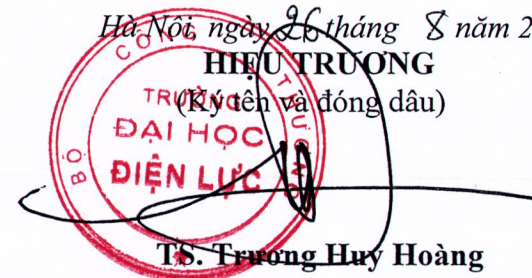 Hà Nội, ngày 26 tháng 8 năm 2
HIỆU TRƯỞNG
(Ký tên và đóng dâu)
BỘ CÔNG THƯƠNG
TRƯỜNG
ĐẠI HỌC
ĐIỆN LỰC
TS. Trương Huy Hoàng